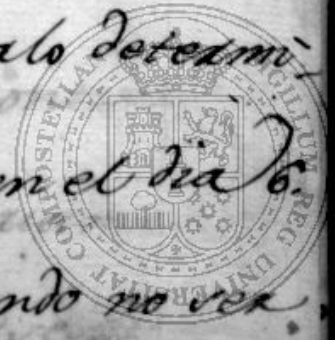 alo determi-
en el dia 6.
ndo no ser
SIGILLUM REG UNIVERSITAT COMPOSTELLAN